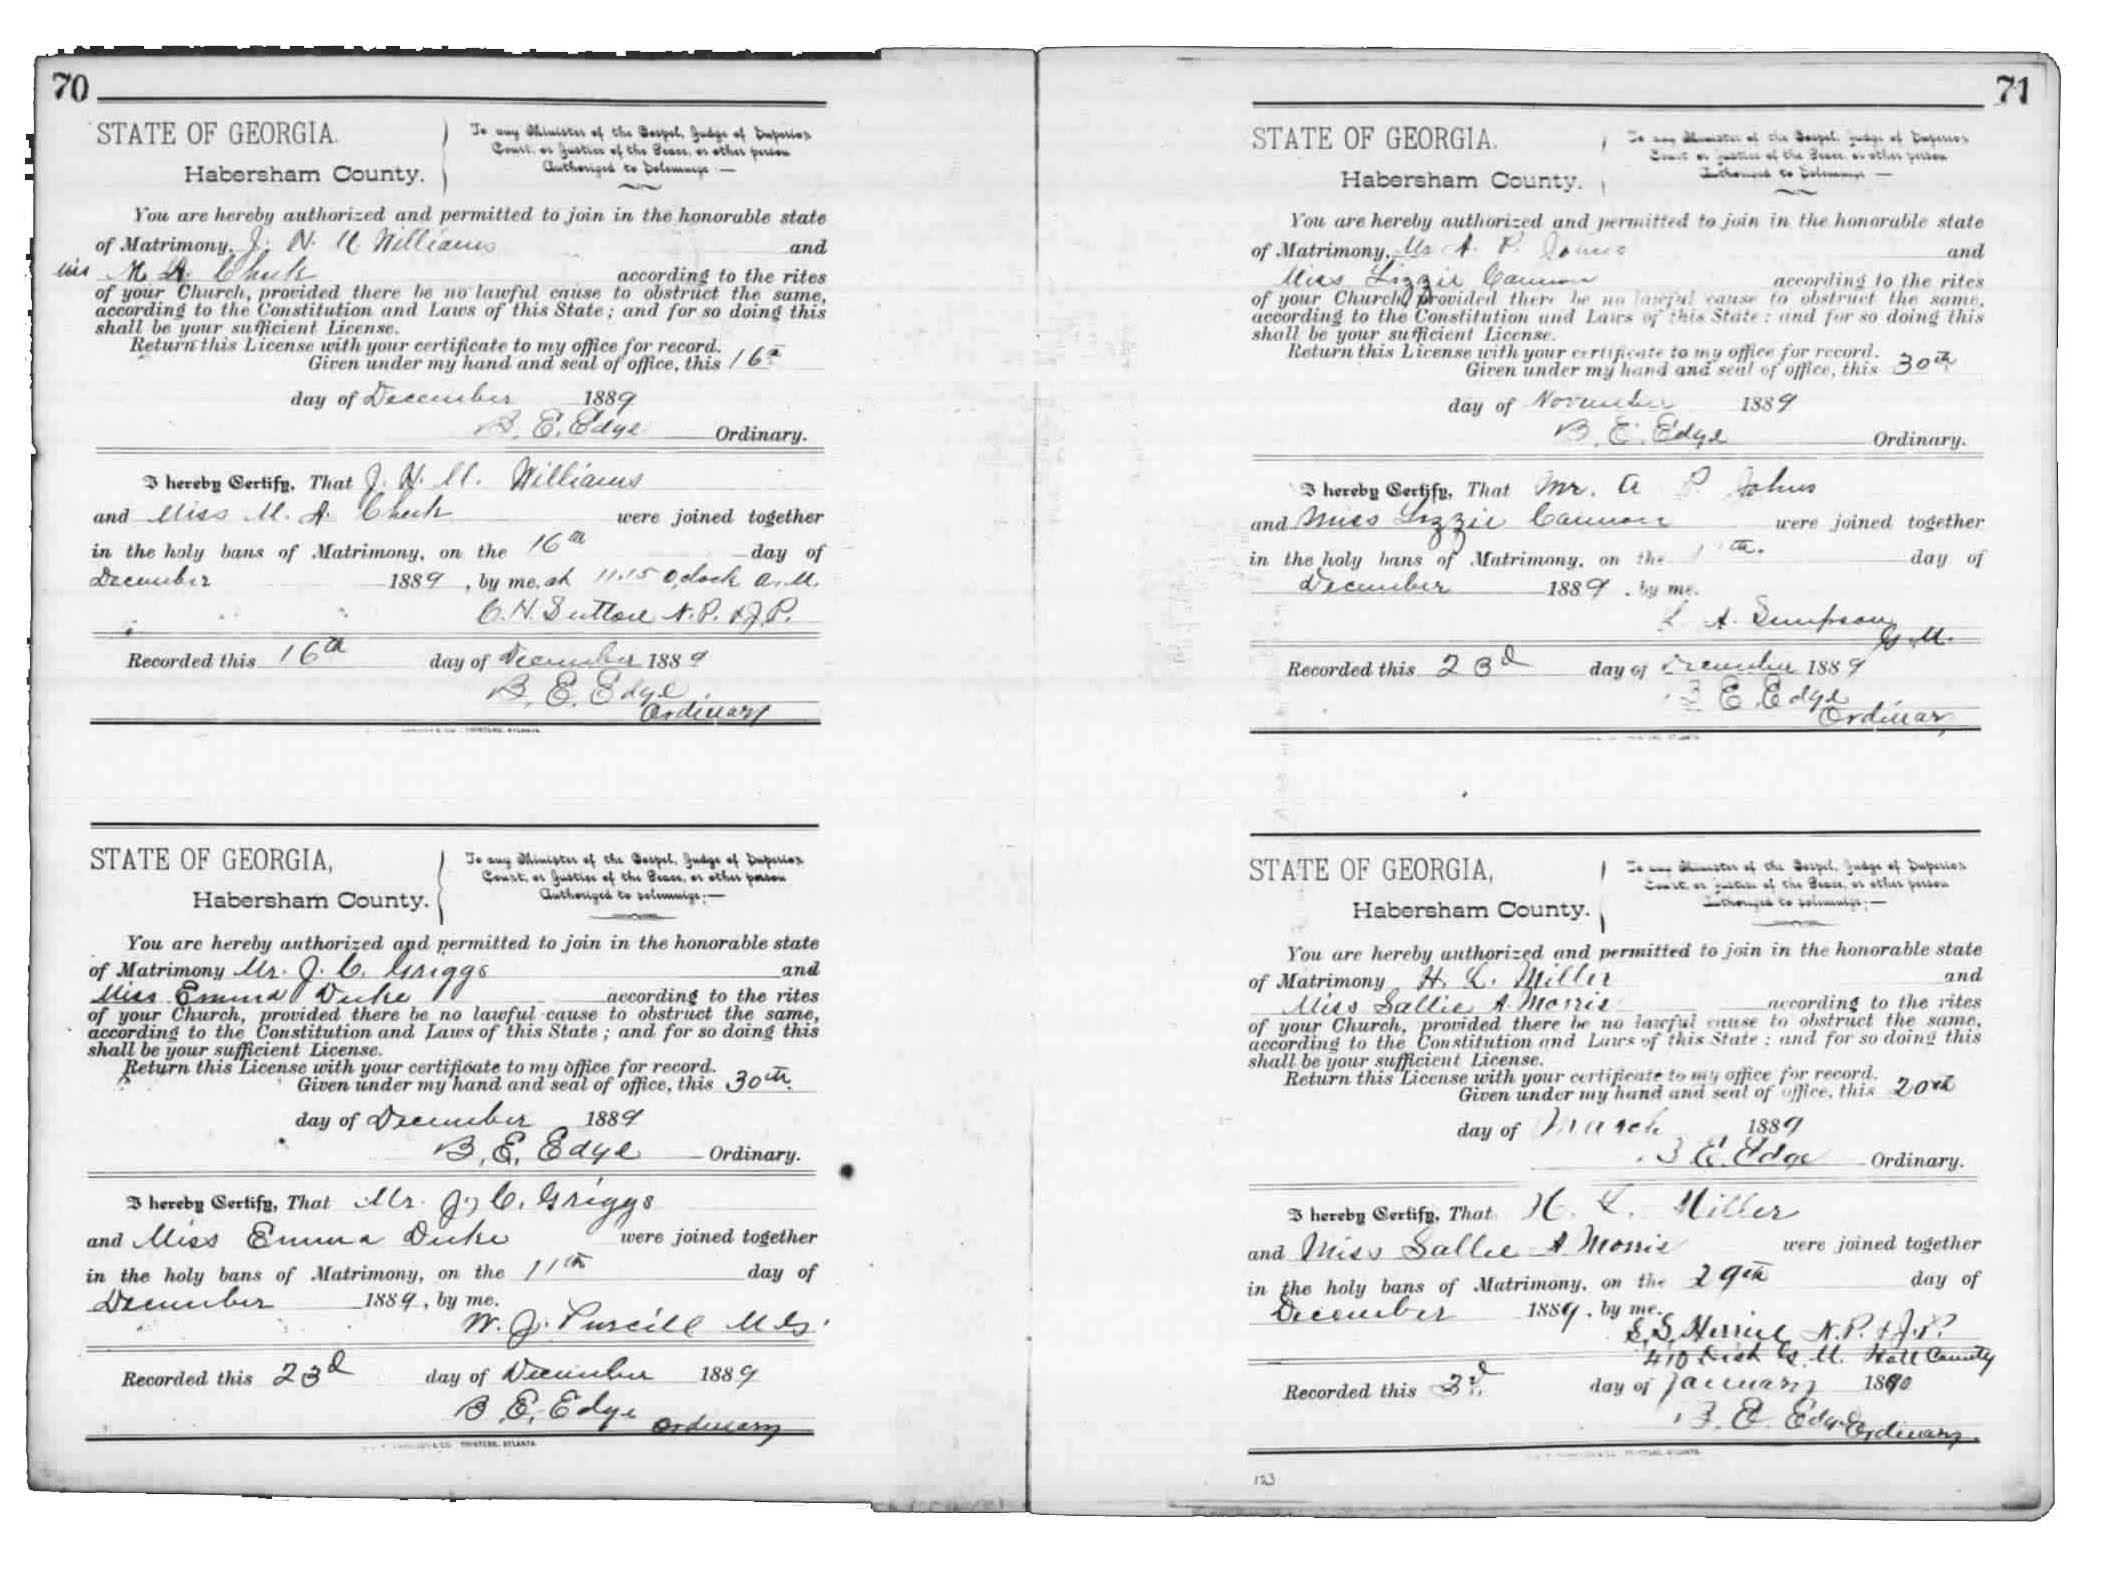 70
STATE OF GEORGIA.
Habersham County.
To any Minister of the Gospel, Judge of Superior
Court, or Justice of the Peace, or other person
Authorized to Solemnize:—
You are hereby authorized and permitted to join in the honorable state
of Matrimony, J. H. M Williams and
Miss M A. Cheek according to the rites
of your Church, provided there be no lawful cause to obstruct the same,
according to the Constitution and Laws of this State; and for so doing this
shall be your sufficient License.
Return this License with your certificate to my office for record.
Given under my hand and seal of office, this 16th
day of December 1889
B. E. Edge Ordinary.
I hereby Certify, That J. H. M. Williams
and Miss M. A. Cheek were joined together
in the holy bans of Matrimony, on the 16th day of
December 1889, by me. at 11.15 O,clock A.M.
C. H. Sutton N. P. & J. P.
Recorded this 16th day of December 1889
B. E. Edge
Ordinary
PRINTERS, ATLANTA
STATE OF GEORGIA,
Habersham County.
To any Minister of the Gospel, Judge of Superior
Court, or Justice of the Peace, or other person
Authorized to solemnize:—
You are hereby authorized and permitted to join in the honorable state
of Matrimony Mr. J. C. Griggs and
Miss Emma Duke according to the rites
of your Church, provided there be no lawful cause to obstruct the same,
according to the Constitution and Laws of this State; and for so doing this
shall be your sufficient License.
Return this License with your certificate to my office for record.
Given under my hand and seal of office, this 30th
day of December 1889
B. E. Edge Ordinary.
I hereby Certify, That Mr. J. C. Griggs
and Miss Emma Duke were joined together
in the holy bans of Matrimony, on the 11th day of
December 1889, by me.
W. J. Purcell M G.
Recorded this 23d day of December 1889
B. E. Edge Ordinary
PRINTERS, ATLANTA
71
STATE OF GEORGIA.
Habersham County.
To any Minister of the Gospel, Judge of Superior
Court or Justice of the Peace, or other person
Authorized to Solemnize —
You are hereby authorized and permitted to join in the honorable state
of Matrimony, Mr A. P. Johns and
Miss Lizzie Cannon according to the rites
of your Church, provided there be no lawful cause to obstruct the same,
according to the Constitution and Laws of this State: and for so doing this
shall be your sufficient License.
Return this License with your certificate to my office for record.
Given under my hand and seal of office, this 30th
day of November 1889
B. E. Edge Ordinary.
I hereby Certify, That Mr. A P Johns
and Miss Lizzie Cannon were joined together
in the holy bans of Matrimony, on the day of
December 1889, by me.
L A. Simpson
G M.
Recorded this 23d day of December 1889
B E Edge
Ordinary
STATE OF GEORGIA,
Habersham County.
To any Minister of the Gospel, Judge of Superior
Court, or Justice of the Peace, or other person
Authorized to solemnize;—
You are hereby authorized and permitted to join in the honorable state
of Matrimony H. L. Miller and
Miss Sallie A Morris according to the rites
of your Church, provided there be no lawful cause to obstruct the same,
according to the Constitution and Laws of this State: and for so doing this
shall be your sufficient License.
Return this License with your certificate to my office for record.
Given under my hand and seal of office, this 20th
day of March 1889
B E. Edge Ordinary.
I hereby Certify, That H. L. Miller
and Miss Sallie A Morris were joined together
in the holy bans of Matrimony, on the 29th day of
December 1889, by me.
S. S. N. P. & J. P.
410 Dist G. M. Hall County
Recorded this 3d day of January 1890
B. E. Edge Ordinary.
123